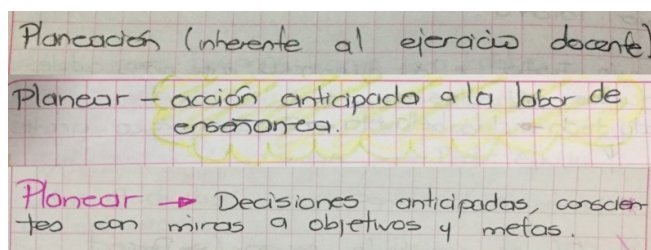 Planeación (inherente al ejercicio docente)
Planear – acción anticipada a la labor de
enseñanza.
Planear → Decisiones anticipadas, conscien-
tes con miras a objetivos y metas.